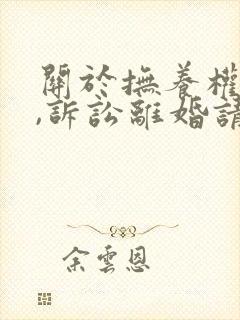 關於撫養權
,訴訟離婚請
余雲恩